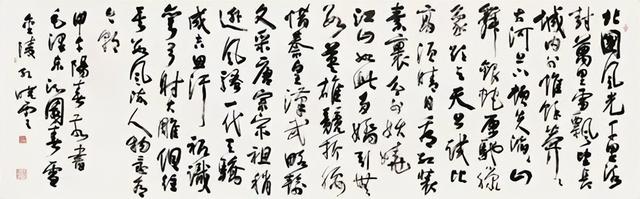 北國風光千里冰
封萬里雪飄望長
城内外惟餘莽莽
大河上下頓失滔滔山
舞銀蛇原馳蠟
象欲與天公試比
高須晴日看紅裝
素裹分外妖嬈
江山如此多嬌引無
數英雄競折腰
惜秦皇漢武略輸
文采唐宗宋祖稍
遜風騷一代天驕
成吉思汗祇識
彎弓射大雕俱往
矣數風流人物還看
今朝
甲午陽春書
毛澤東沁園春雪
金陵